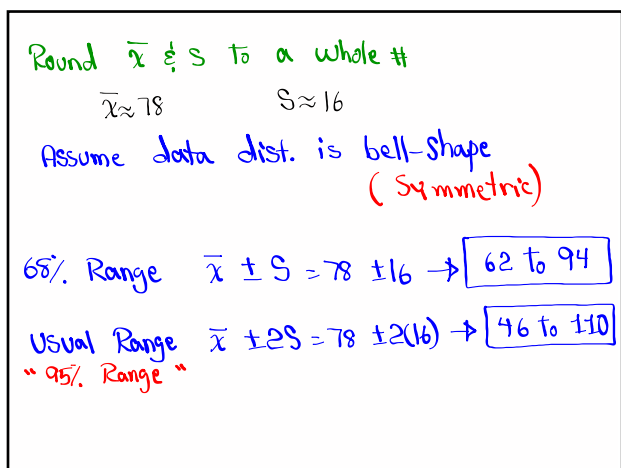 Round x̄ & S to a whole #
x̄≈78 S≈16
Assume data dist. is bell-shape
(Symmetric)
68% Range x̄ ± S = 78 ±16 → 62 to 94
Usual Range x̄ ±2S = 78 ±2(16) → 46 to 110
"95% Range"